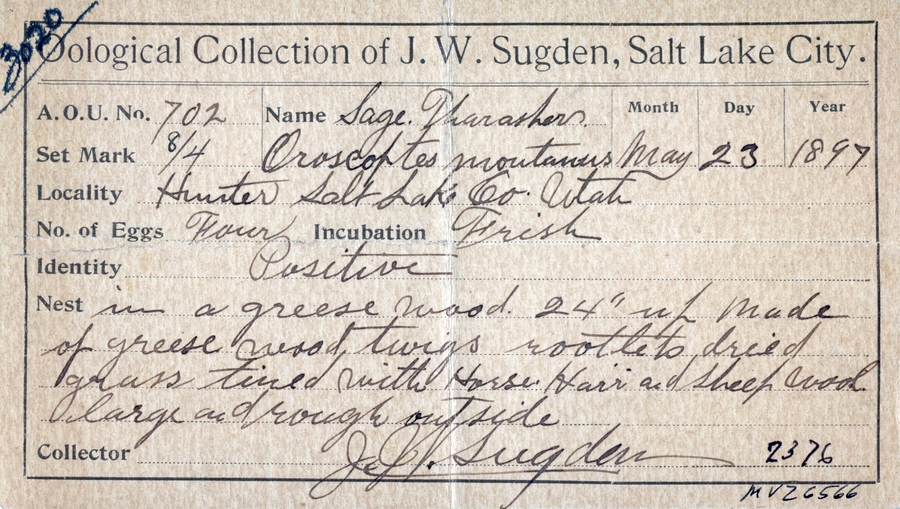 3020
Oological Collection of J. W. Sugden, Salt Lake City.
A.O.U. No. 702 Name Sage. Tharasher. Month Day Year
Set Mark 8/4 Oroscoptes montanus May 23 1897
Locality Hunter Salt Lake Co. Utah
No. of Eggs Four Incubation Frish
Identity Positive
Nest in a greese wood. 24" up Made
of greese wood twigs rootlets dried
grass lined with Horse Harr and sheep wool
large and rough outside
Collector J. W. Sugden 2376
MVZ6566